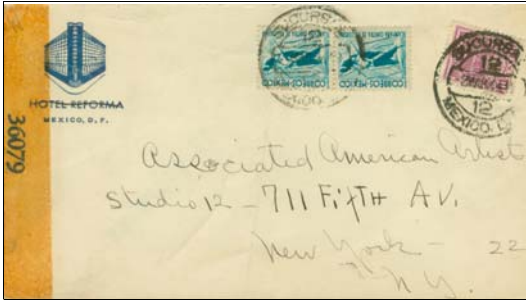 HOTEL REFORMA
MEXICO, D. F.
36079
CORREOS MEXICO
CORREOS MEXICO
SUCURSAL
12
12
MEXICO, D.
Associated American Artist
Studio 12 - 711 FifTH AV.
New York - 22
N.Y.